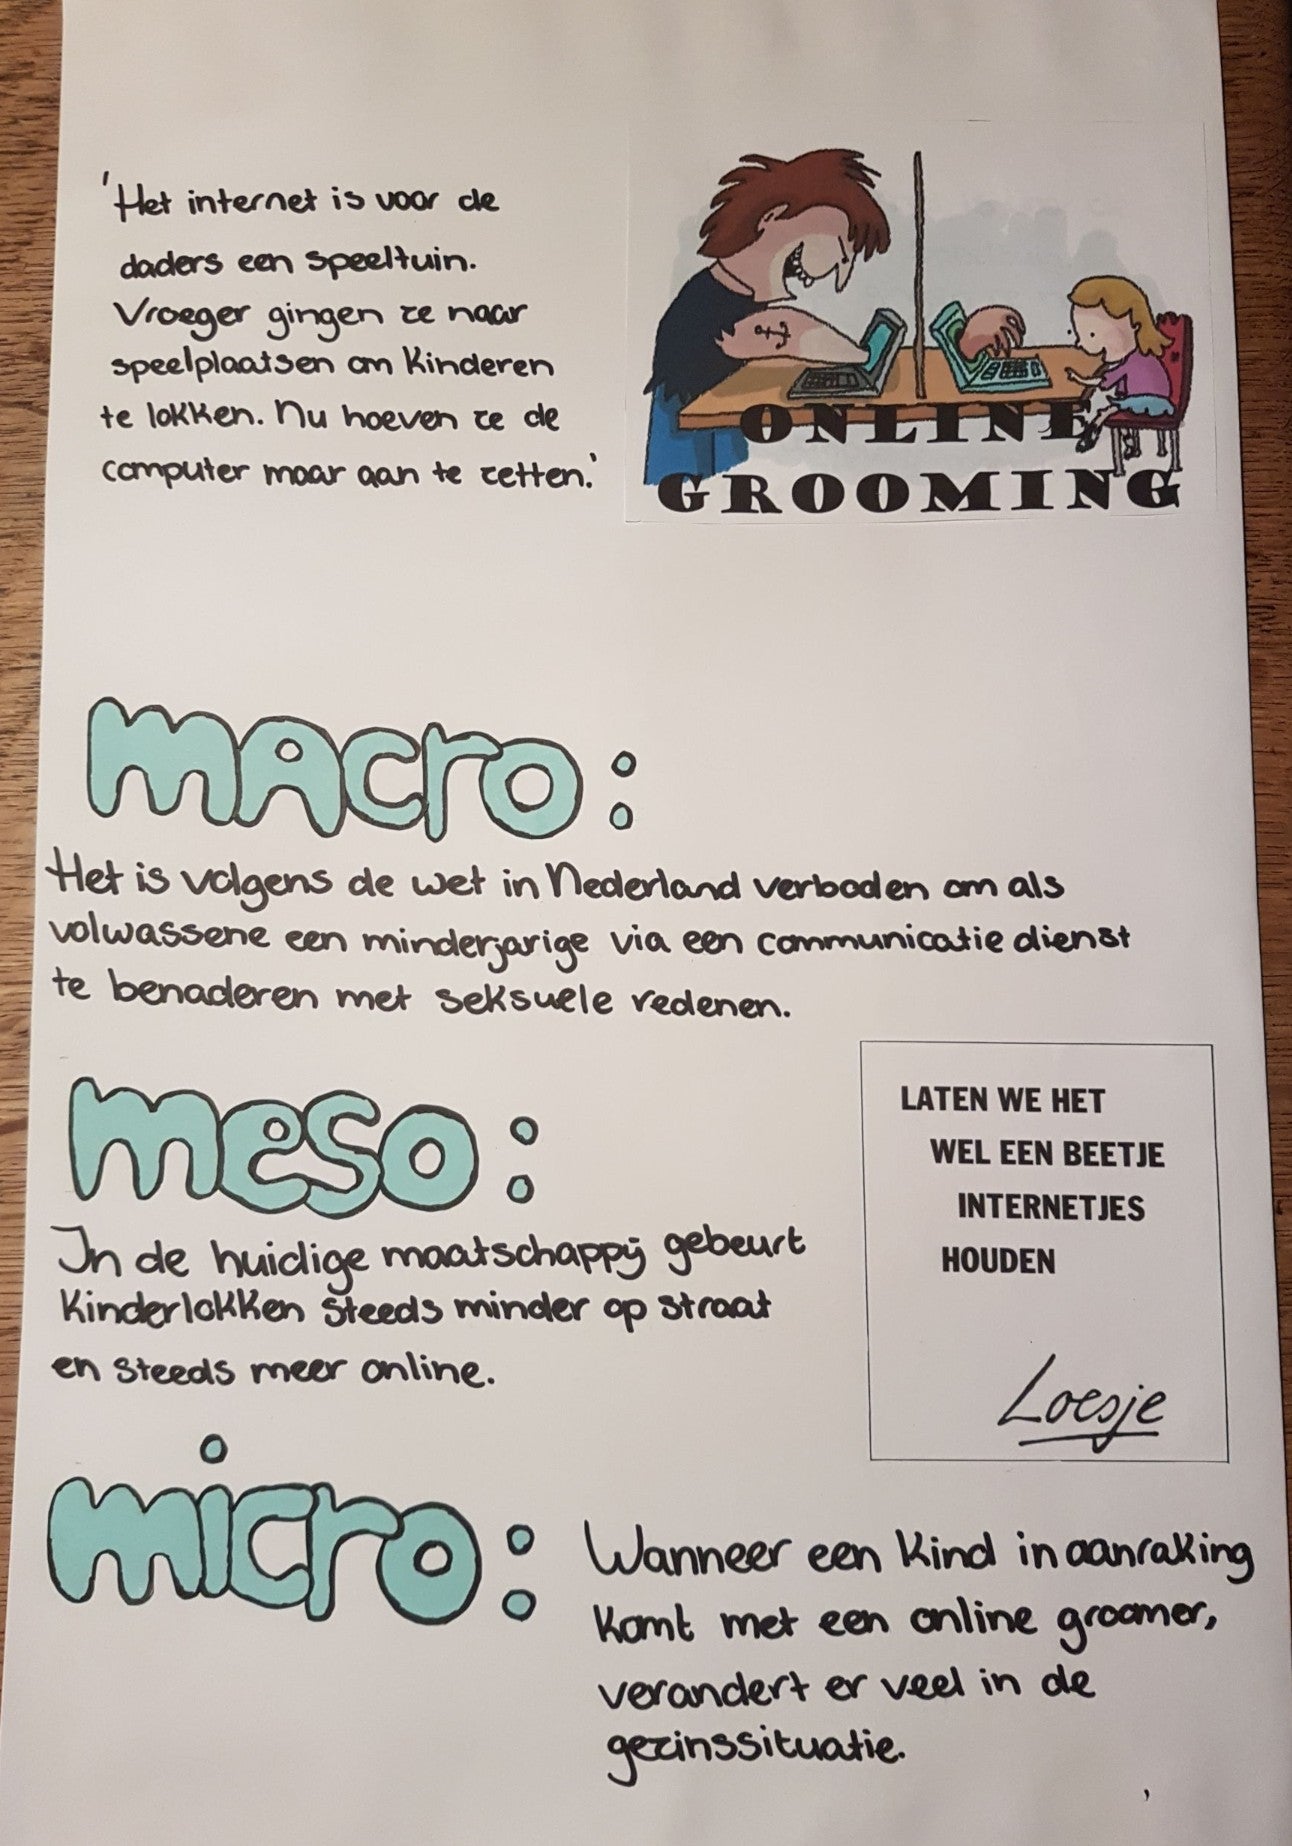 'Het internet is voor de
daders een speeltuin.
Vroeger gingen ze naar
speelplaatsen om kinderen
te lokken. Nu hoeven ze de
computer maar aan te zetten.'
ONLINE
GROOMING
macro:
Het is volgens de wet in Nederland verboden om als
volwassene een minderjarige via een communicatie dienst
te benaderen met seksuele redenen.
meso:
In de huidige maatschappij gebeurt
kinderlokken steeds minder op straat
en steeds meer online.
LATEN WE HET
WEL EEN BEETJE
INTERNETJES
HOUDEN
Loesje
micro:
Wanneer een kind in aanraking
komt met een online groomer,
verandert er veel in de
gezinssituatie.